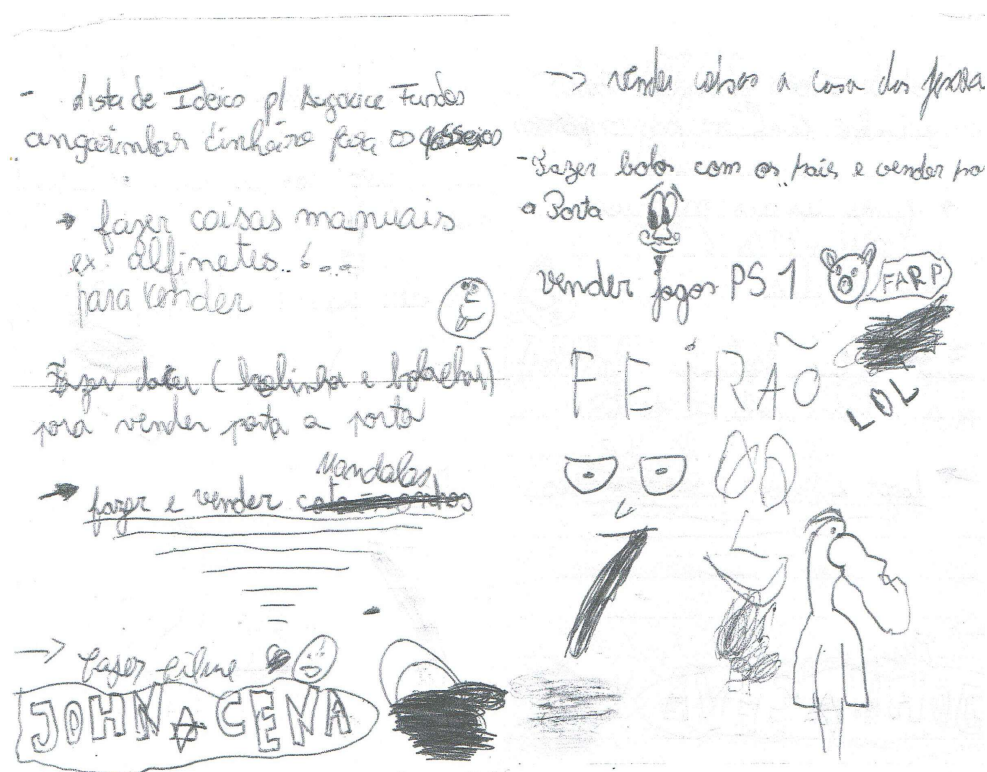 - Lista de Ideias p/ Angariar Fundos
angarimbar dinheiro para os passeios
→ fazer coisas manuais
ex: alfinetes...
para vender
Fazer doces (bolinhos e bolachas)
para vender porta a porta
Mandalas
→ fazer e vender
→ fazer filme
JOHN CENA
→ vender coisas a casa das pessoas
- Fazer bolos com os pais e vender
a Porta
vender jogos PS 1
FARP
FEIRÃO
LOL